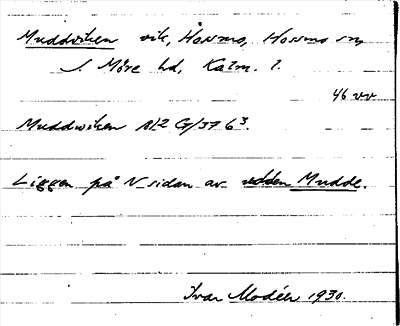 Muddviken vik, Hossmo, Hossmo sn,
S. Möre hd, Kalm. l.
46 vv
Muddwiken RAÄ G/37 6³.
Ligger på N sidan av udden Mudde.
Ivar Modéer 1930.